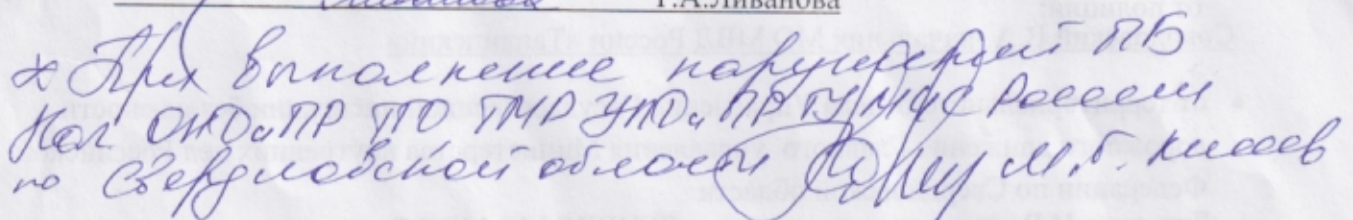 Г.А.Ливанова
* При выполнение нарушений ПБ
Нач ОНДиПР ПО ТМР УНДиПР ГУ МЧС России
по Свердловской области М.Б.